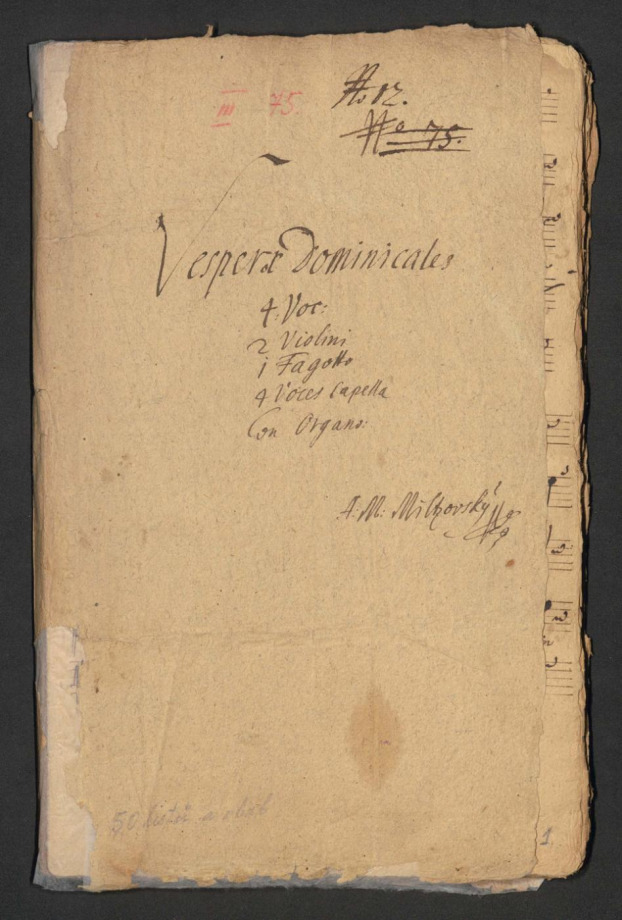 III 75. No 12.
No 75.
Vesperæ Dominicales
4: Voc:
2 Violini
1 Fagotto
4 Voces Capella
Con Organo:
A: M:
50 listů a
1